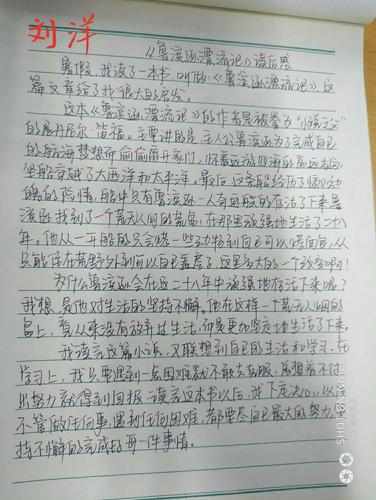 刘洋
《鲁滨逊漂流记》读后感
暑假,我读了一本书,叫做《鲁滨逊漂流记》,这
篇文章给了我很大的启发。
这本《鲁滨逊漂流记》的作者是被誉为“小说之父”
的展丹尼尔·笛福。主要讲的是:主人公鲁滨逊为了完成自己
的航海梦想而偷偷离开家门,怀着远游四海的高远志向,
坐船穿越了大西洋和太平洋。最后,这条船经历了惊心动
魄的险情,船中只有鲁滨逊一人奇迹般的存活了下来。鲁
滨逊找到了一个荒无人烟的荒岛,在那里顽强地生活了二十八
年。他从一开始的只会吃一些动物到自己可以烤面包,从
只能住在荒野外到可以自己盖房子,这是多大的一个改变啊!
为什么鲁滨逊会在这二十八年中顽强地存活下来呢?
我想,是他对生活的坚持不懈。他在这样一个荒无人烟的
岛上,看从来没有放弃过生活,而是更加坚定地生活了下来。
我读完这篇小说,又联想到自己的生活和学习。在
学习上,我只要遇到一点困难就不敢去克服,总想着不付
出努力就得到回报。读完这本书以后,我下定决心,以后
不管做任何事,遇到任何困难,都要尽自己最大的努力,坚
持不懈的完成好每一件事情。
SHOT ON